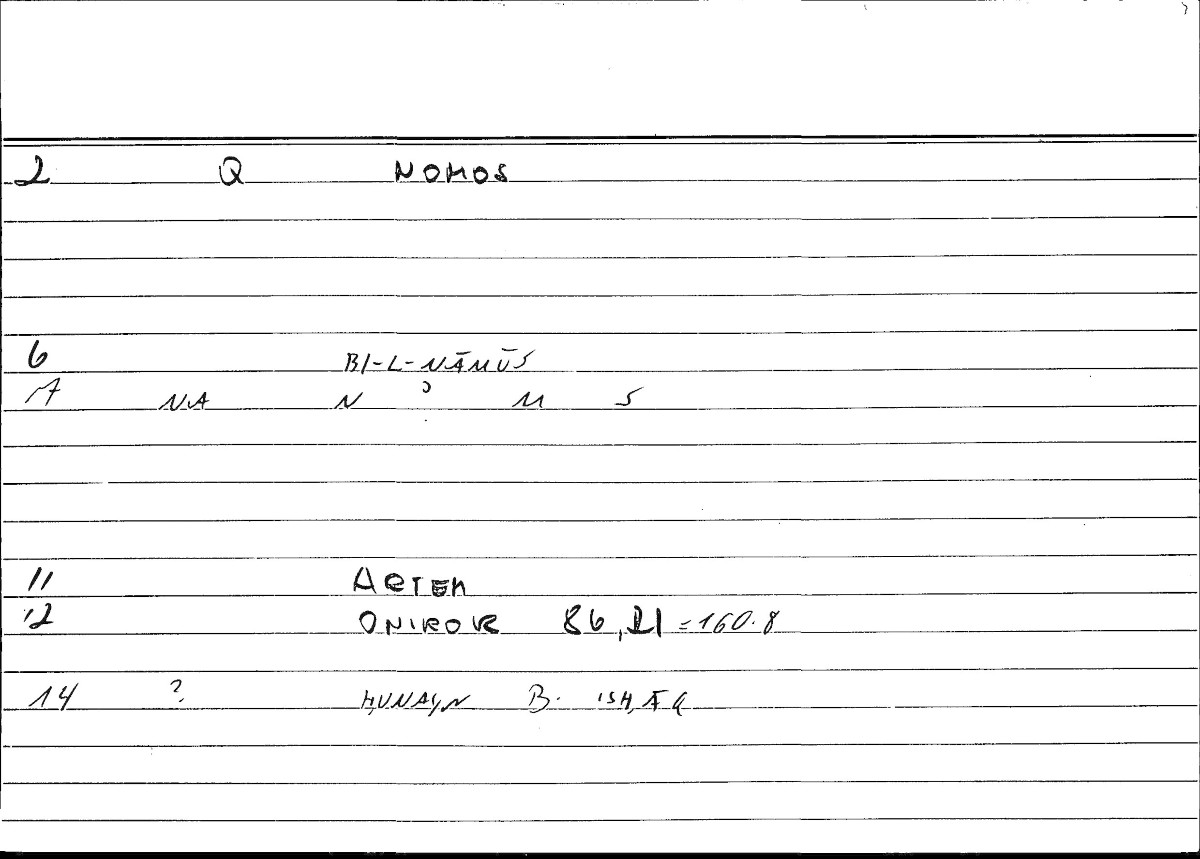 2 Q NOMOS
6 BI-L-NĀMŪS
7 NA N ʾ M S
11 ARTEM
12 ONIROK 86,21 = 160.8
14 ? ḤUNAYN B. ISḤĀQ